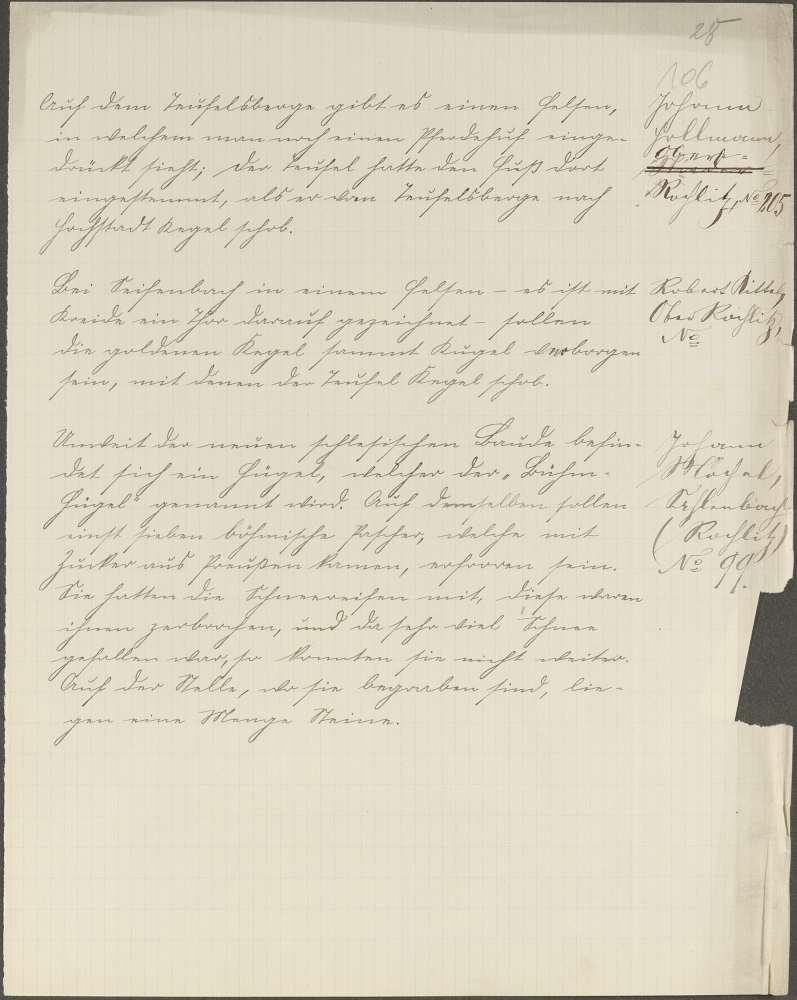 28
106
Auf dem Teufelsberge gibt es einen Felsen,
in welchem man noch einen Pferdehuf einge-
drückt sieht; der Teufel hatte den Fuß dort
eingestemmt, als er vom Teufelsberge nach
Hochstadt Kegel schob.
Johann
Hollmann,
Ober-
Rochlitz, No 205
Bei Seifenbach in einem Felsen – es ist mit
Kreide ein Thor darauf gezeichnet – sollen
die goldenen Kegel sammt Kugel verborgen
sein, mit denen der Teufel Kegel schob.
Robert Rittel,
Ober Rochlitz,
No
Unweit der neuen schlesischen Baude befin-
det sich ein Hügel, welcher der „Böhm-
Hügel“ genannt wird. Auf demselben sollen
einst sieben böhmische Pascher, welche mit
Zucker aus Preußen kamen, erfroren sein.
Sie hatten die Schneereifen mit, diese waren
ihnen zerbrochen, und da sehr viel Schnee
gefallen war, so konnten sie nicht weiter.
Auf der Stelle, wo sie begraben sind, lie-
gen eine Menge Steine.
Johann
Möchel,
Sahlenbach
(Rochlitz)
No 99.